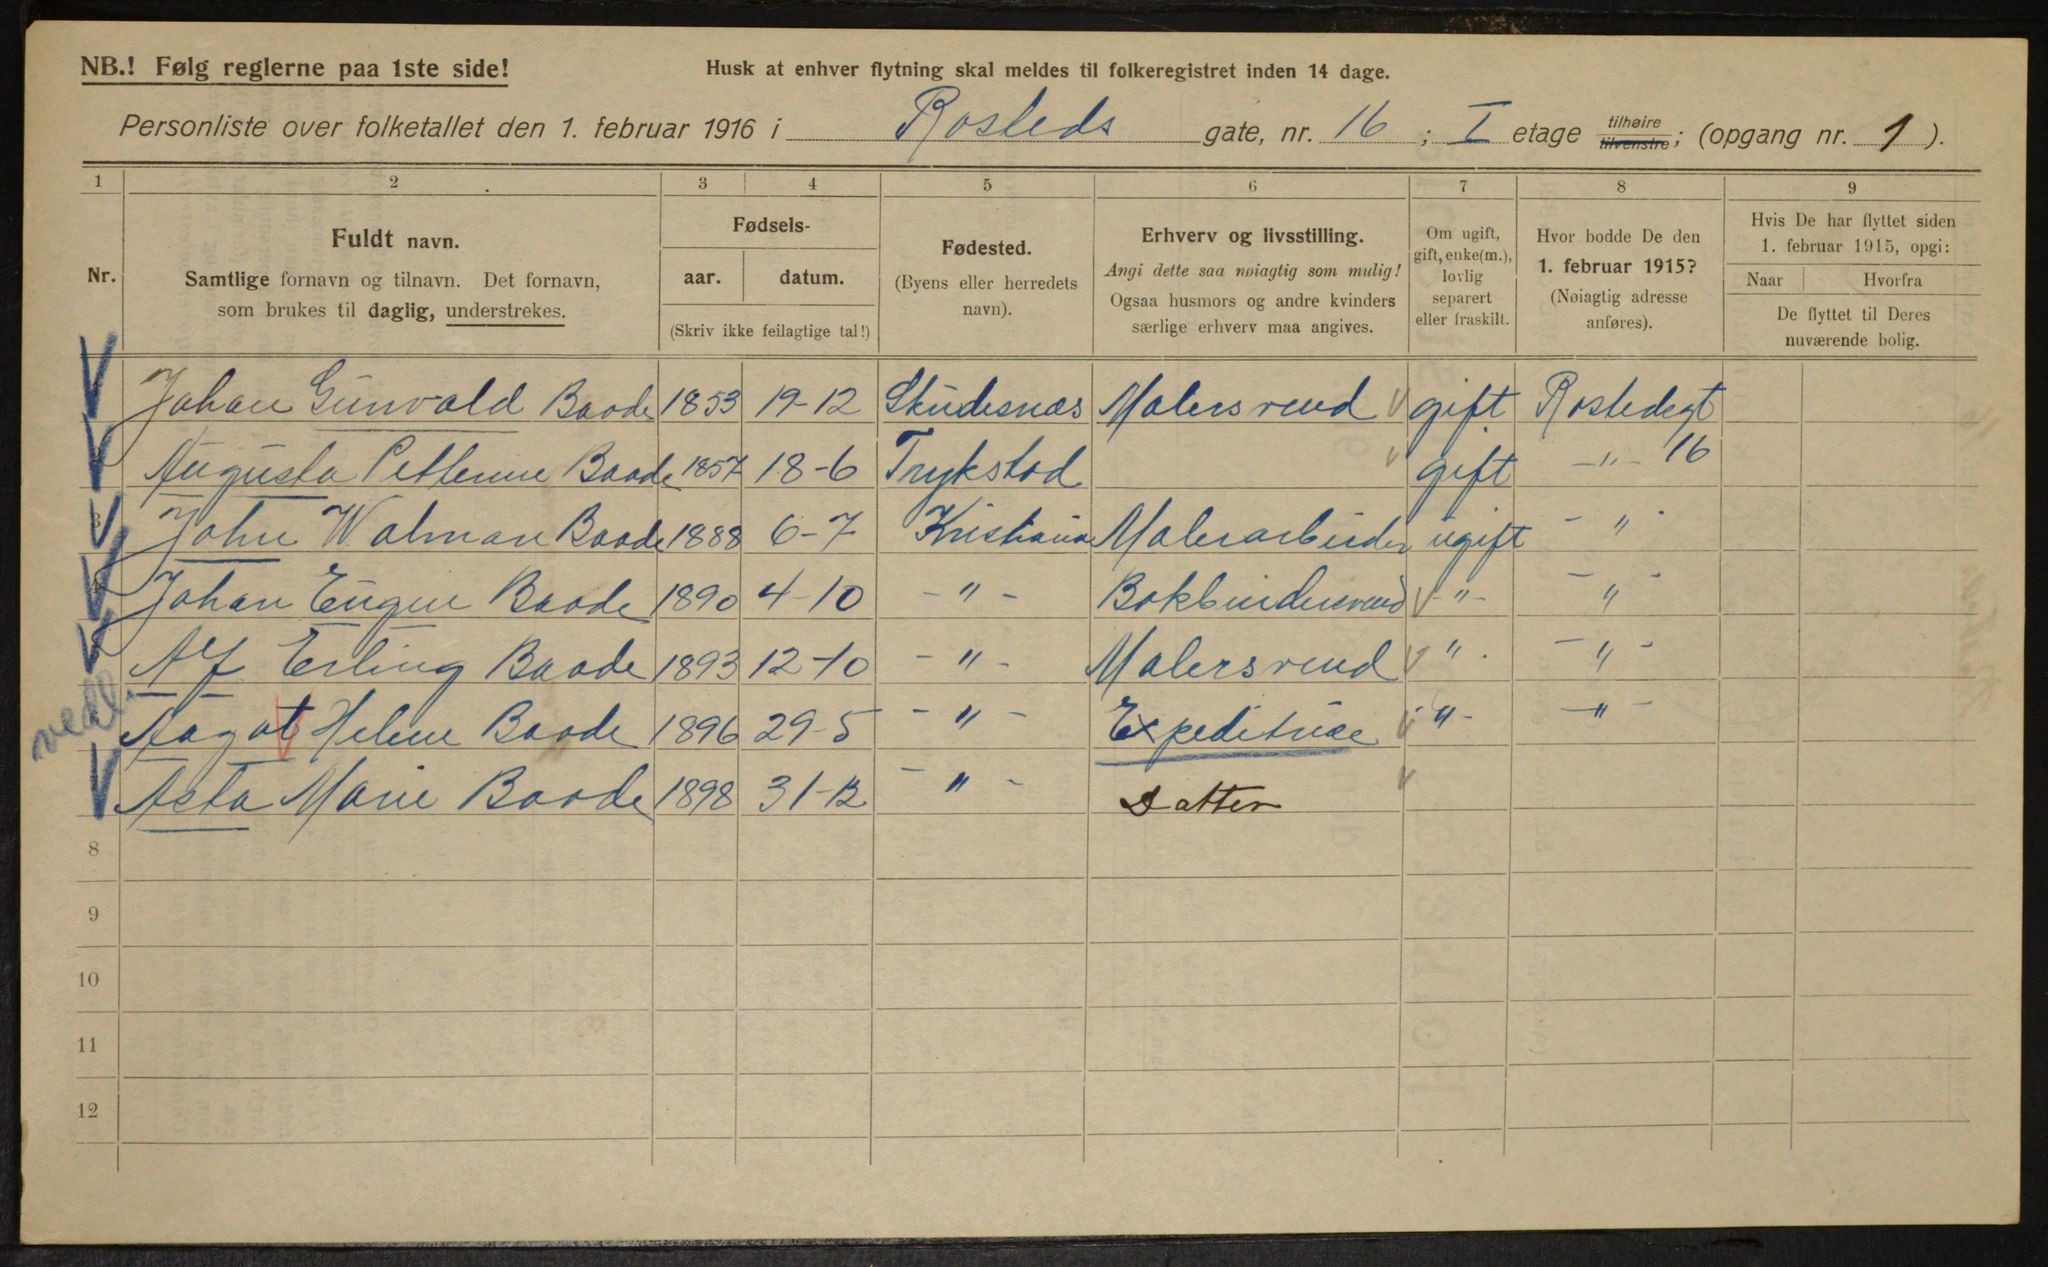 NB.! Følg reglerne paa 1ste side!
Husk at enhver flytning skal meldes til folkeregistret inden 14 dage.
Personliste over folketallet den 1. februar 1916 i Rosteds gate, nr. 16 ; I etage tilhøire tilvenstre; (opgang nr. 1 ).
1 2 3 4 5 6 7 8 9
Nr.
Fuldt navn.
Samtlige fornavn og tilnavn. Det fornavn,
som brukes til daglig, understrekes.
Fødsels-
aar. datum.
(Skriv ikke feilagtige tal!)
Fødested.
(Byens eller herredets
navn).
Erhverv og livsstilling.
Angi dette saa nøiagtig som mulig!
Ogsaa husmors og andre kvinders
særlige erhverv maa angives.
Om ugift,
gift, enke(m.),
lovlig
separert
eller fraskilt.
Hvor bodde De den
1. februar 1915?
(Nøiagtig adresse
anføres).
Hvis De har flyttet siden
1. februar 1915, opgi:
Naar Hvorfra
De flyttet til Deres
nuværende bolig.
Johan Gunvald Baade 1853 19-12 Skudesnæs Malersvend gift Rostedsgt
Augusta Petterine Baade 1857 18-6 Trykstad gift -"- 16
John Walman Baade 1888 6-7 Kristiania Malerarbeider ugift - " -
Johan Eugen Baade 1890 4-10 - " - Bokbindersvend -"- - " -
Alf Erling Baade 1893 12-10 - " - Malersvend " - - " -
Aagot Helene Baade 1896 29-5 - " - Expeditrice - " - - " -
Asta Marie Baade 1898 31-12 - " - Datter
8
9
10
11
12